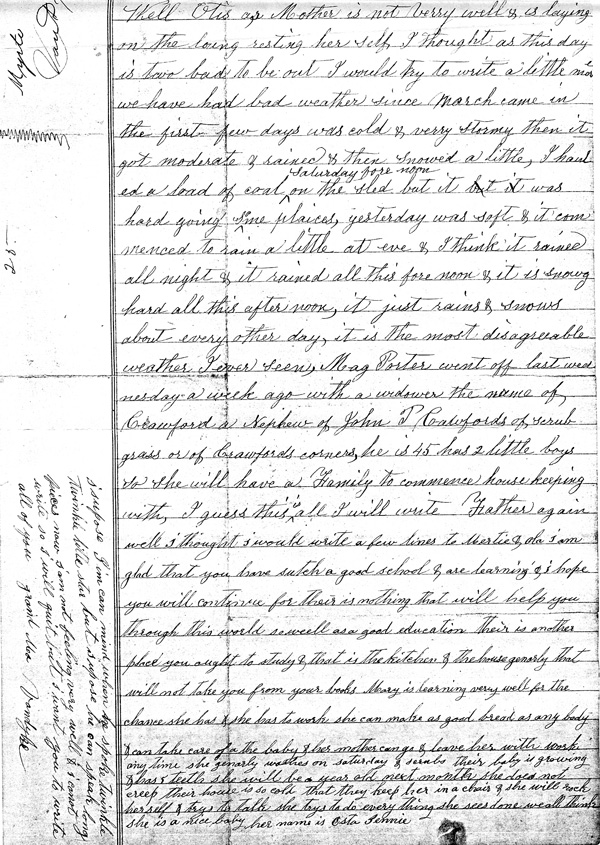 Well Otis as Mother is not verry well & is laying
on the loung resting her self I thought as this day
is two bad to be out I would try to write a little more
we have had bad weather since March came in
the first few days was cold & verry stormy then it
got moderate & rained & then snowed a little, I haul
ed a load of coal saturday fore noon on the sled but it but it was
hard going sme plaices, yesterday was soft & it com
menced to rain a little at eve & I think it rained
all night & it rained all this fore noon & it is snowg
hard all this after noon, it just rains & snows
about every other day, it is the most disagreeable
weather I ever seen, Mag Porter went off last wed
nesday a week ago with a widower the name of
Crawford a Nephew of John P Crawfords of scrub
grass or of Crawfords corners, he is 45 has 2 little boys
so she will have a Family to commence house keeping
with, I guess this is all I will write Father again
well i thought i would write a few lines to Mertie & ola i am
glad that you have sutch a good school & are learning & i hope
you will continue for their is nothing that will help you
through this world so well as a good education their is another
place you aught to study & that is the kitchen & the house genarly that
will not take you from your books Mary is learning very well for the
chance she has & she has to work she can make as good bread as any body
& can take care of the baby & her mother can go & leave her with work
any time she genarly washes on saturday & scrubs their baby is growing
& has 2 teeth she will be a year old next month she does not
creep their house is so cold that they keep her in a chair & she will rock
herself & trys to talk she trys to do every thing she sees done we all think
she is a nice baby her name is Osta Jennie
i supose Jim can mind when he spoke twinkle
twinkle little star but i supose he can speak long
pieces now i am not feeling very well & i cannot
write so i will quit but i want you to write
all of you grand ma Vandyke